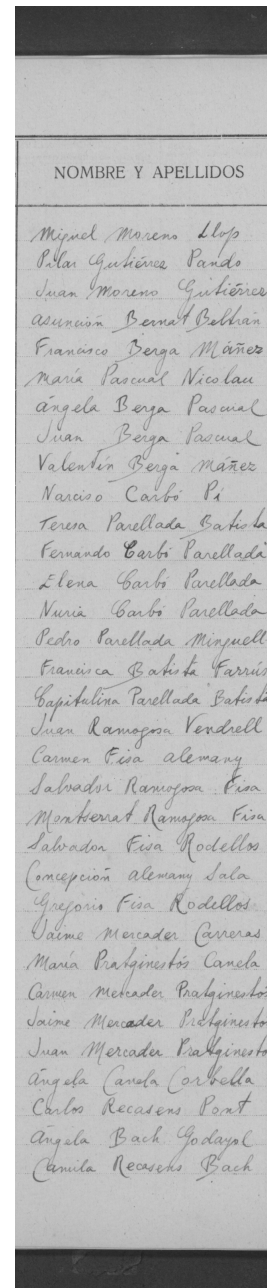 NOMBRE Y APELLIDOS
Miguel Moreno Llop
Pilar Gutiérrez Pando
Juan Moreno Gutiérrez
Asunción Bernat Beltrán
Francisco Berga Máñez
María Pascual Nicolau
Ángela Berga Pascual
Juan Berga Pascual
Valentín Berga Máñez
Narciso Carbó Pi
Teresa Parellada Batista
Fernando Carbó Parellada
Elena Carbó Parellada
Nuria Carbó Parellada
Pedro Parellada Minguell
Francisca Batista Farrús
Capitulina Parellada Batista
Juan Ramogosa Vendrell
Carmen Fisa Alemany
Salvador Ramogosa Fisa
Montserrat Ramogosa Fisa
Salvador Fisa Rodellos
Concepción Alemany Sala
Gregorio Fisa Rodellos
Jaime Mercader Carreras
María Pratginestós Canela
Carmen Mercader Pratginestós
Jaime Mercader Pratginesto
Juan Mercader Pratginesto
Ángela Canela Corbella
Carlos Recasens Pont
Ángela Bach Godayol
Camila Recasens Bach